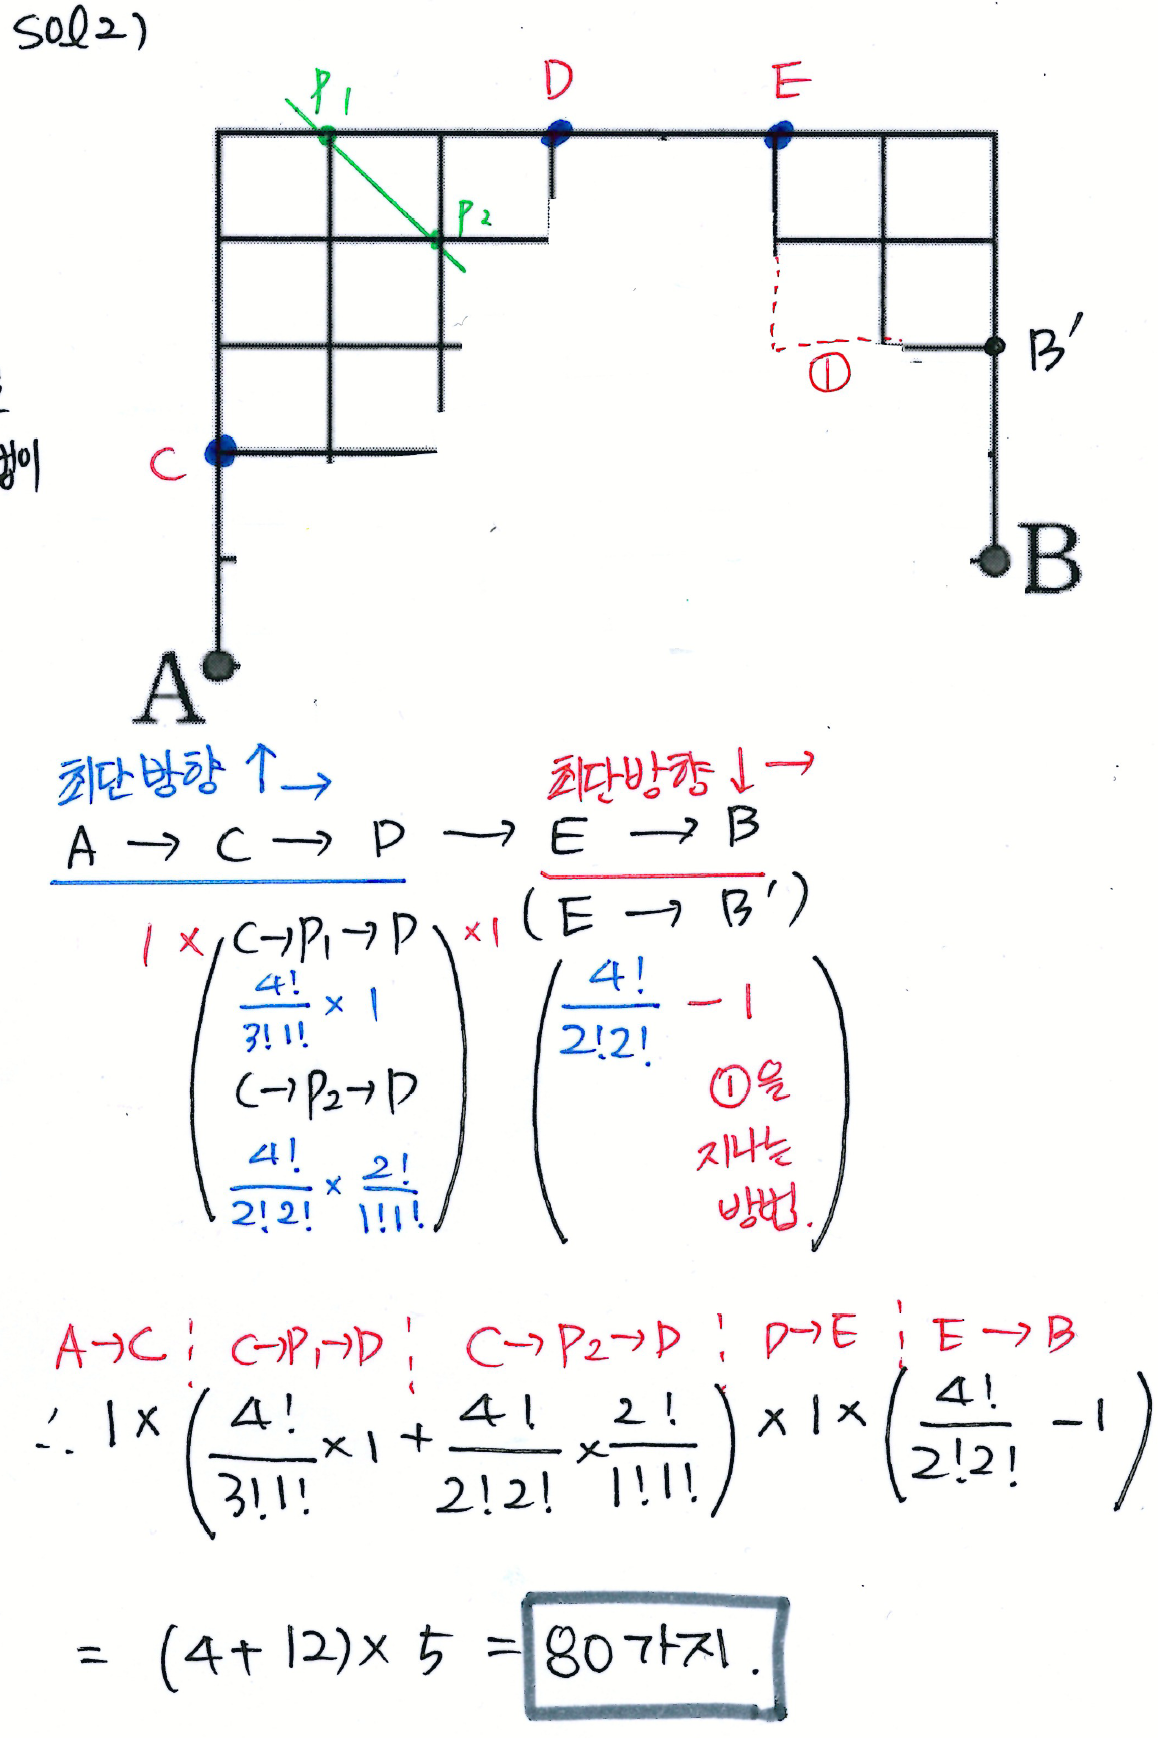 sol2)
P1
D
E
P2
B'
①
C
B
A
최단방향 ↑→
최단방향 ↓→
A → C → D → E → B
(E → B')
1 × ( C→P1→D ) ×1
4!/3!1! × 1
C→P2→D
4!/2!2! × 2!/1!1!
4!/2!2! - 1
①을
지나는
방법.
A→C ┆ C→P1→D ┆ C→P2→D ┆ D→E ┆ E → B
∴ 1 × ( 4!/3!1! × 1 + 4!/2!2! × 2!/1!1! ) × 1 × ( 4!/2!2! - 1 )
= (4+12)× 5 = 80가지.